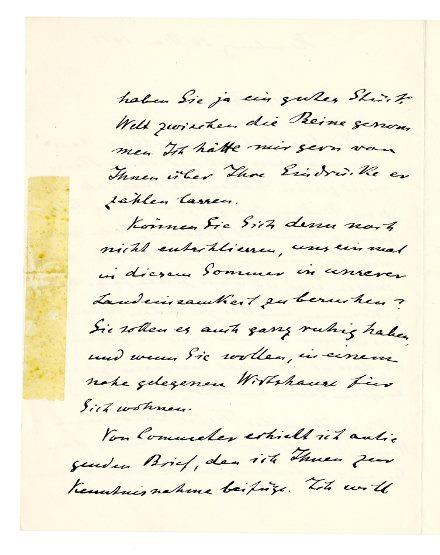 haben Sie ja ein gutes Stück
Welt zwischen die Beine genom
men Ich hätte mir gern von
Ihnen über Ihre Eindrücke er
zählen lassen.
Können Sie Sich denn noch
nicht entschliessen, uns einmal
in diesem Sommer in unserer
Landeinsamkeit zu besuchen?
Sie sollen es auch ganz ruhig haben
und wenn Sie wollen, in einem
nahe gelegenen Wirtshause für
Sich wohnen.
Von Commeter erhielt ich anlie
genden Brief, den ich Ihnen zur
Kenntnisnahme beifüge. Ich will